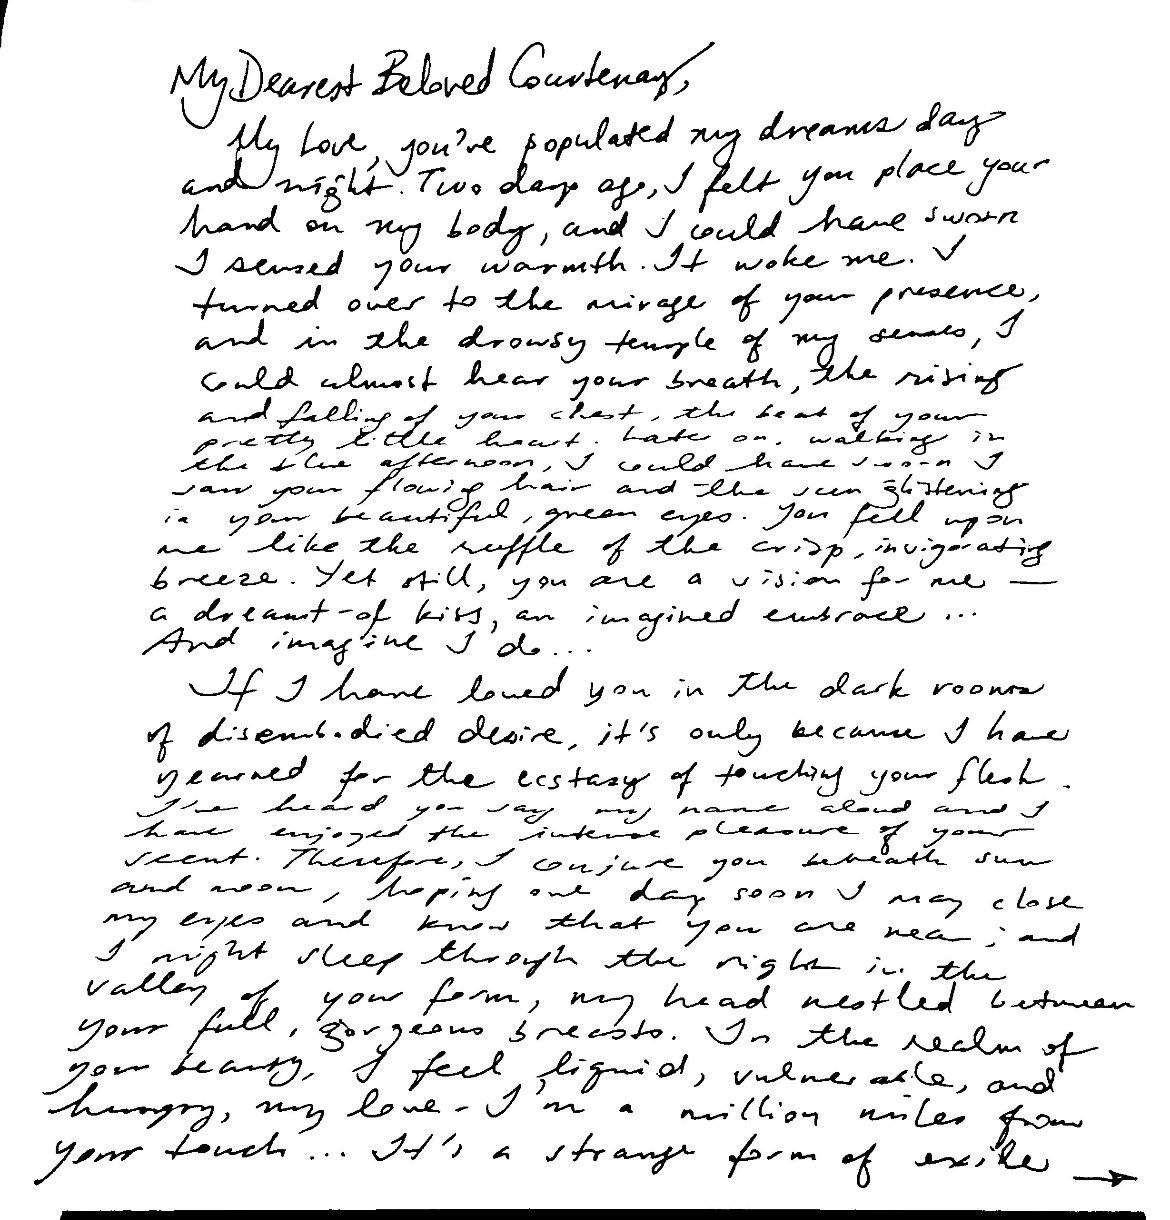 My Dearest Beloved Courtenay,
My love, you've populated my dreams day
and night. Two days ago, I felt you place your
hand on my body, and I could have sworn
I sensed your warmth. It woke me. I
turned over to the mirage of your presence,
and in the drowsy temple of my senses, I
could almost hear your breath, the rising
and falling of your chest, the beat of your
pretty little heart. Late on, walking in
the blue afternoon, I could have sworn I
saw your flowing hair and the sun glistening
in your beautiful, green eyes. You fell upon
me like the ruffle of the crisp, invigorating
breeze. Yet still, you are a vision for me —
a dreamt-of kiss, an imagined embrace ...
And imagine I do...
If I have loved you in the dark rooms
of disembodied desire, it's only because I have
yearned for the ecstasy of touching your flesh.
I've heard you say my name aloud and I
have enjoyed the intense pleasure of your
scent. Therefore, I conjure you beneath sun
and moon, hoping one day soon I may close
my eyes and know that you are near; and
I might sleep through the night in the
valley of your form, my head nestled between
your full, gorgeous breasts. In the realm of
your beauty, I feel liquid, vulnerable, and
hungry, my love - I'm a million miles from
your touch ... It's a strange form of exile →